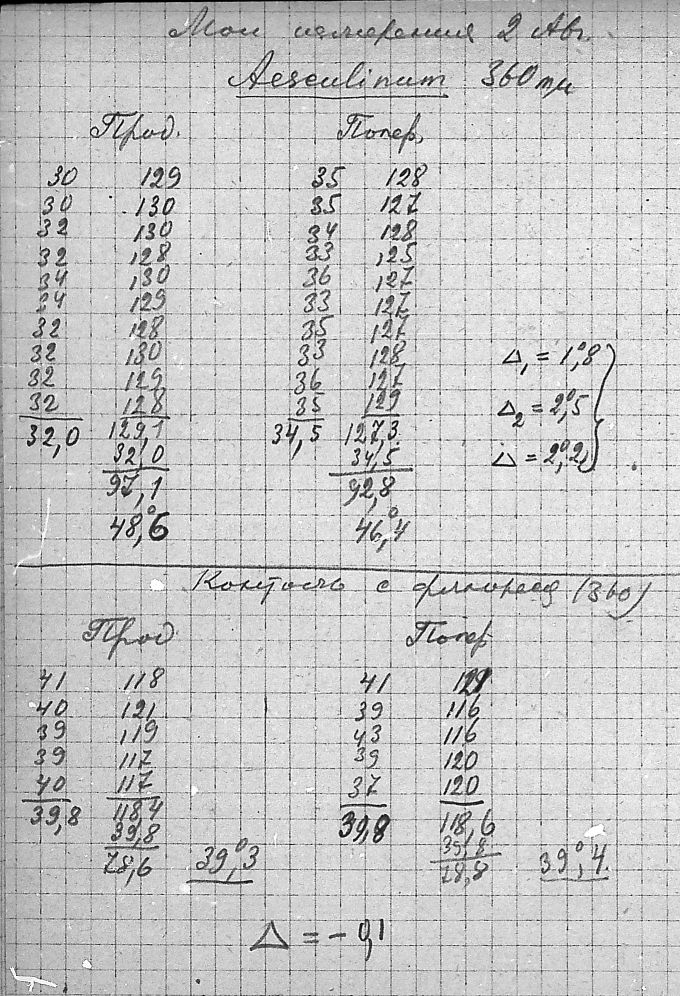 Мои измерения 2 Авг.
Aesculinum 360 mμ
Прод. Попер.
30 129 35 128
30 130 35 127
32 130 34 128
32 128 33 125
34 130 36 127
34 129 33 127
32 128 35 127
32 130 33 128
32 129 36 127
32 128 35 129
32,0 129,1 34,5 127,3
32,0 34,5
97,1 92,8
48,°6 46,°4
Δ₁ = 1,°8
Δ₂ = 2,°5
Δ = 2,°2
Контроль с флюоресц (360)
Прод. Попер
41 118 41 121
40 121 39 116
39 119 43 116
39 117 39 120
40 117 37 120
39,8 118,4 39,8 118,6
39,8 39,8
78,6 39,°3 78,8 39,°4.
Δ = – 0,1